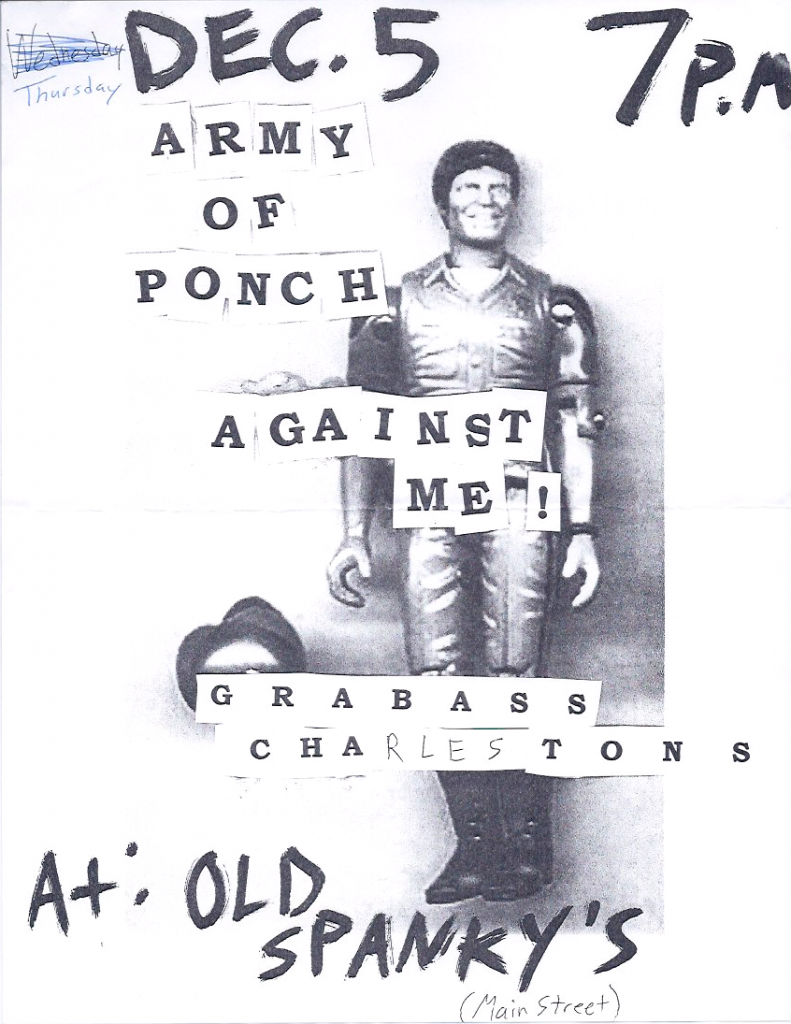 Wednesday
Thursday
DEC. 5
7 P.M
ARMY
OF
PONCH
AGAINST
ME!
GRABASS
CHARLESTONS
At: OLD
SPANKY'S
(Main Street)